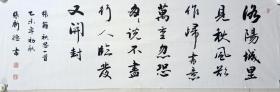 洛陽城里
見秋風欲
作歸書意
萬重忽恐
匆々說不盡
行人臨發
又開封
張籍秋思一首
乙未年初秋
張衛德書